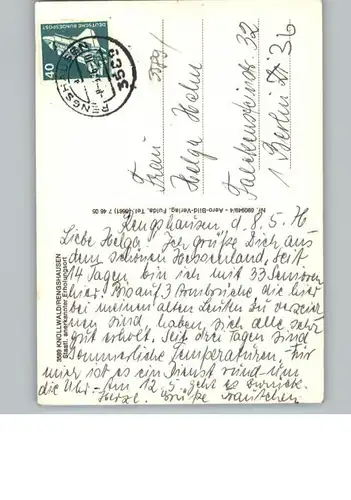 DEUTSCHE BUNDESPOST
40
RENGSHAUSEN
3589
Frau
Helga Hahn
Fackenbergstr. 32
1 Berlin 36
Nr. 090949/4 Aero-Bild-Verlag, Fulda, Tel. (0661) 7 46 05
3589 KNÜLLWALD/RENGSHAUSEN
Staatl. anerkannter Erholungsort
Rengshausen, d. 8.5.76
Liebe Helga! Ich grüße Dich aus
dem schönen Hessenland, seit
14 Tagen bin ich mit 33 Senioren
hier. Bis auf 3 Armbrüche die hier
bei meinen alten Leuten zu verzeich
nen sind haben sich alle sehr
gut erholt. Seit drei Tagen sind
sommerliche Temperaturen. Für
mich ist es ein Dienst rund um
die Uhr. Am 12.5. geht es zurück.
Herzl. Grüße